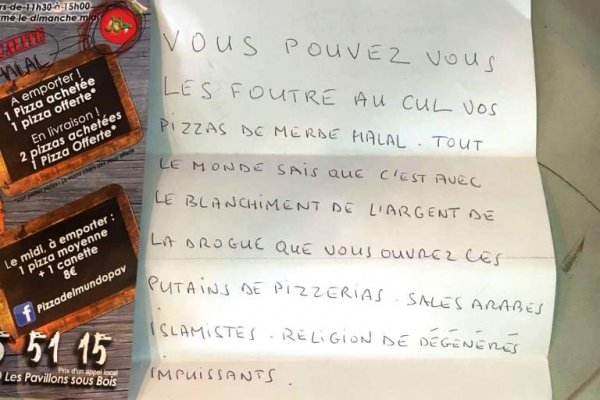 11h30 à 15h00
le dimanche midi
A emporter !
1 Pizza achetée
1 pizza offerte*
En livraison !
2 pizzas achetées
1 Pizza Offerte*
Le midi, à emporter :
1 pizza moyenne
+ 1 canette
8€
Pizzadelmundopav
51 15
Prix d'un appel local
Les Pavillons sous Bois
VOUS POUVEZ VOUS
LES FOUTRE AU CUL VOS
PIZZAS DE MERDE HALAL. TOUT
LE MONDE SAIS QUE C'EST AVEC
LE BLANCHIMENT DE L'ARGENT DE
LA DROGUE QUE VOUS OUVREZ CES
PUTAINS DE PIZZERIAS. SALES ARABES
ISLAMISTES. RELIGION DE DÉGÉNÉRÉS
IMPUISSANTS.